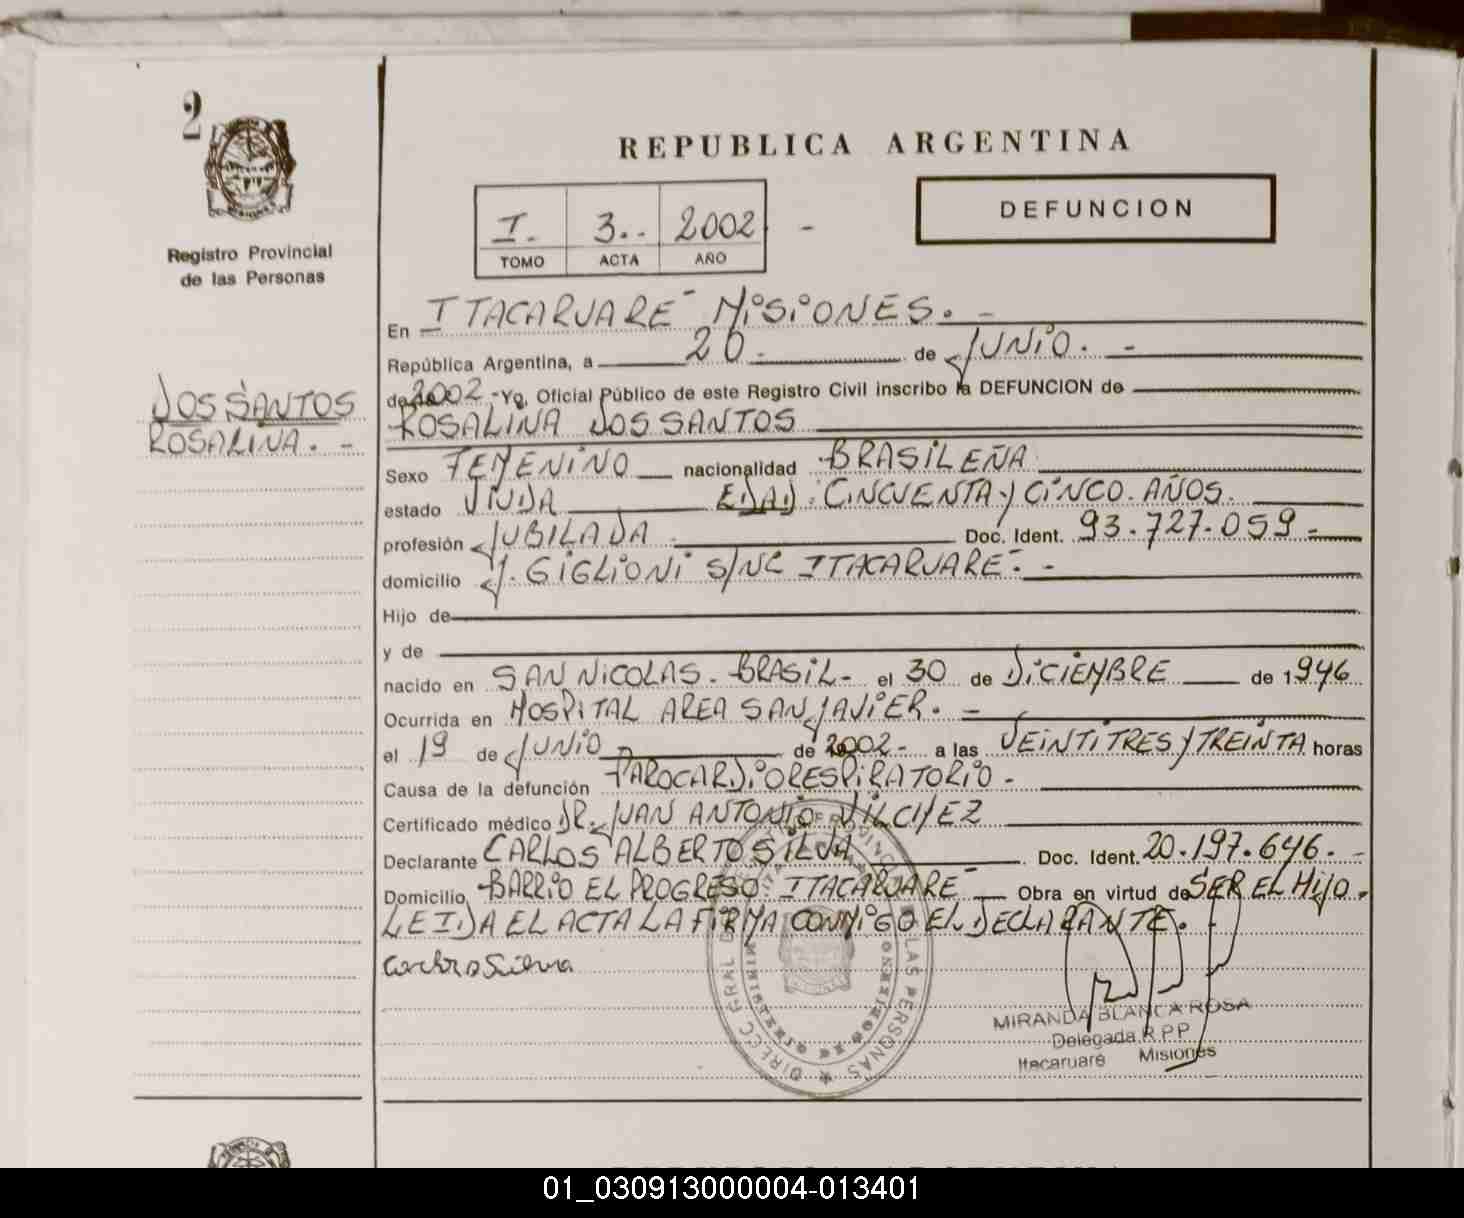 2
REPUBLICA ARGENTINA
I. 3.. 2002 -
TOMO ACTA AÑO
DEFUNCION
Registro Provincial
de las Personas
DOS SANTOS
ROSALINA. -
En ITACARUARE - MiSiONES. -
República Argentina, a 20. de JUNiO. -
de 2002 - Yo, Oficial Público de este Registro Civil inscribo la DEFUNCION de
ROSALINA DOS SANTOS
Sexo FEMENiNO nacionalidad BRASiLEÑA
estado VIUDA EDAD: CiNCUENTA Y CiNCO. AÑOS.
profesión JUBILADA - Doc. Ident. 93.727.059 -
domicilio J. GiGLiONi S/Nº ITACARUARE. -
Hijo de
y de
nacido en SAN NiCOLAS. BRASiL - el 30 de DiCiEMBRE de 1946
Ocurrida en HOSPiTAL AREA SAN JAViER. -
el 19 de JUNiO de 2002 - a las VEiNTiTRES Y TREiNTA horas
Causa de la defunción PAROCARDiORESPiRATORiO -
Certificado médico DR. JUAN ANTONiO VILCHEZ
Declarante CARLOS ALBERTO SiLVA Doc. Ident. 20.197.646. -
Domicilio BARRiO EL PROGRESO. ITACARUARE Obra en virtud de SER EL HiJO -
LEIDA EL ACTA LA FiRMA CONMiGO EL DECLARANTE.
MIRANDA BLANCA ROSA
Delegada R.P.P
Itacaruaré Misiones
01_030913000004-013401